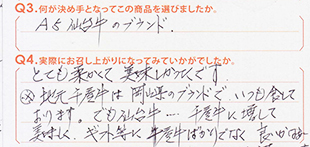 Q3.何が決め手となってこの商品を選びましたか。
A5仙台牛のブランド.
Q4.実際にお召し上がりになってみていかがでしたか。
とても柔かくて美味しかったです
千屋牛は岡山県のブランドで いつも食して
おります。でも仙台牛…. 千屋牛に増して
美味しく ギフト等に 千屋牛ばかりでなく 良いかな